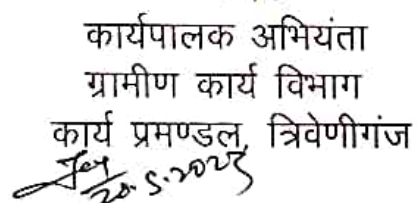 कार्यपालक अभियंता
ग्रामीण कार्य विभाग
कार्य प्रमण्डल, त्रिवेणीगंज
20.5.2025